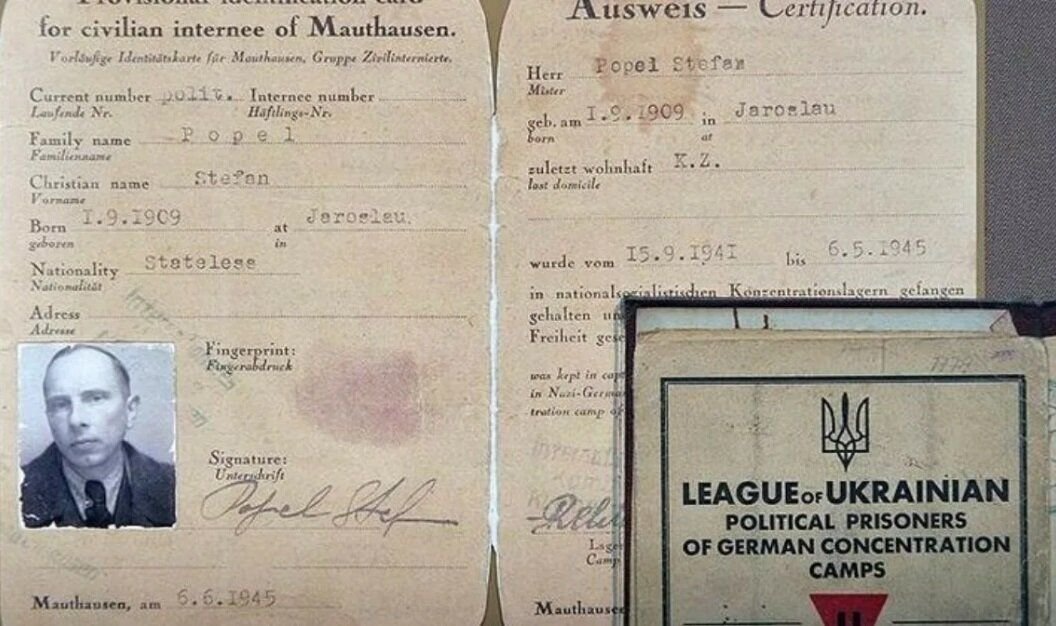 Provisional identification card
for civilian internee of Mauthausen.
Vorläufige Identitätskarte für Mauthausen, Gruppe Zivilinternierte.
Current number polit. Internee number
Laufende Nr. Häftlings-Nr.
Family name Popel
Familienname
Christian name Stefan
Vorname
Born 1.9.1909 at Jaroslau.
geboren in
Nationality Stateless
Nationalität
Adress
Adresse
Fingerprint:
Fingerabdruck
Signature:
Unterschrift
Popel Stef
Mauthausen, am 6.6.1945
Ausweis — Certification.
Herr Popel Stefan
Mister
geb. am 1.9.1909 in Jaroslau
born at
zuletzt wohnhaft K.Z.
last domicile
wurde vom 15.9.1941 bis 6.5.1945
in nationalsozialistischen Konzentrationslagern gefangen
gehalten
Freiheit
was kept in
in Nazi-
tration camp
Mauthausen
LEAGUE OF UKRAINIAN
POLITICAL PRISONERS
OF GERMAN CONCENTRATION
CAMPS
U